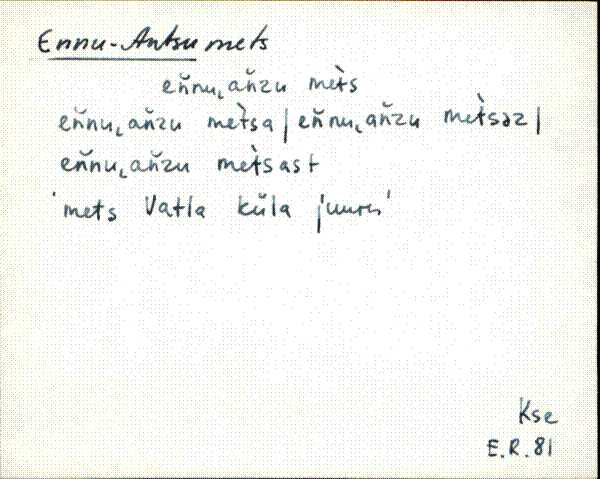 Ennu-Antsu mets
eňnu˛aňzu mèts
eňnu˛aňzu mètsa | eňnu˛aňzu mètsəz |
eňnu˛aňzu mètsast
'mets Vatla küla juures'
Kse
E.R. 81